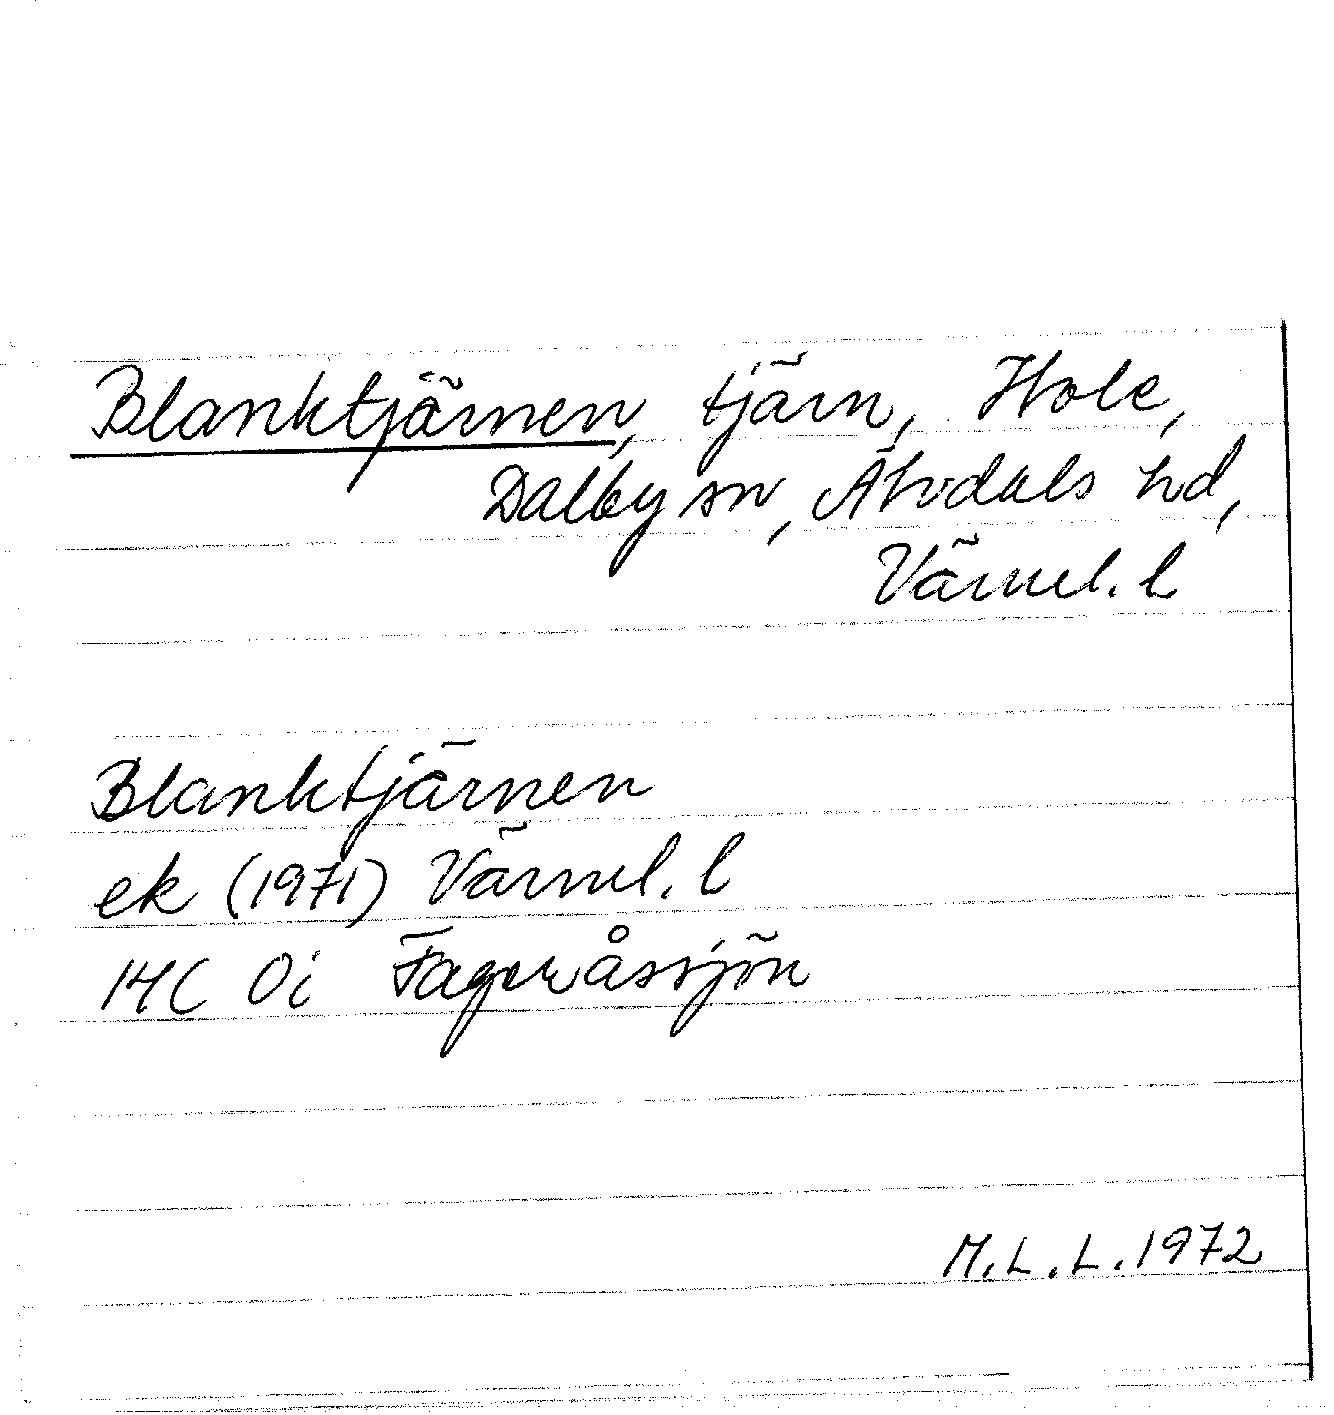 Blanktjärnen, tjärn, Hole,
Dalby sn, Älvdals hd,
Värml. l
Blanktjärnen
ek (1971) Värml. l
14C 0i Fageråssjön
M.L.L.1972